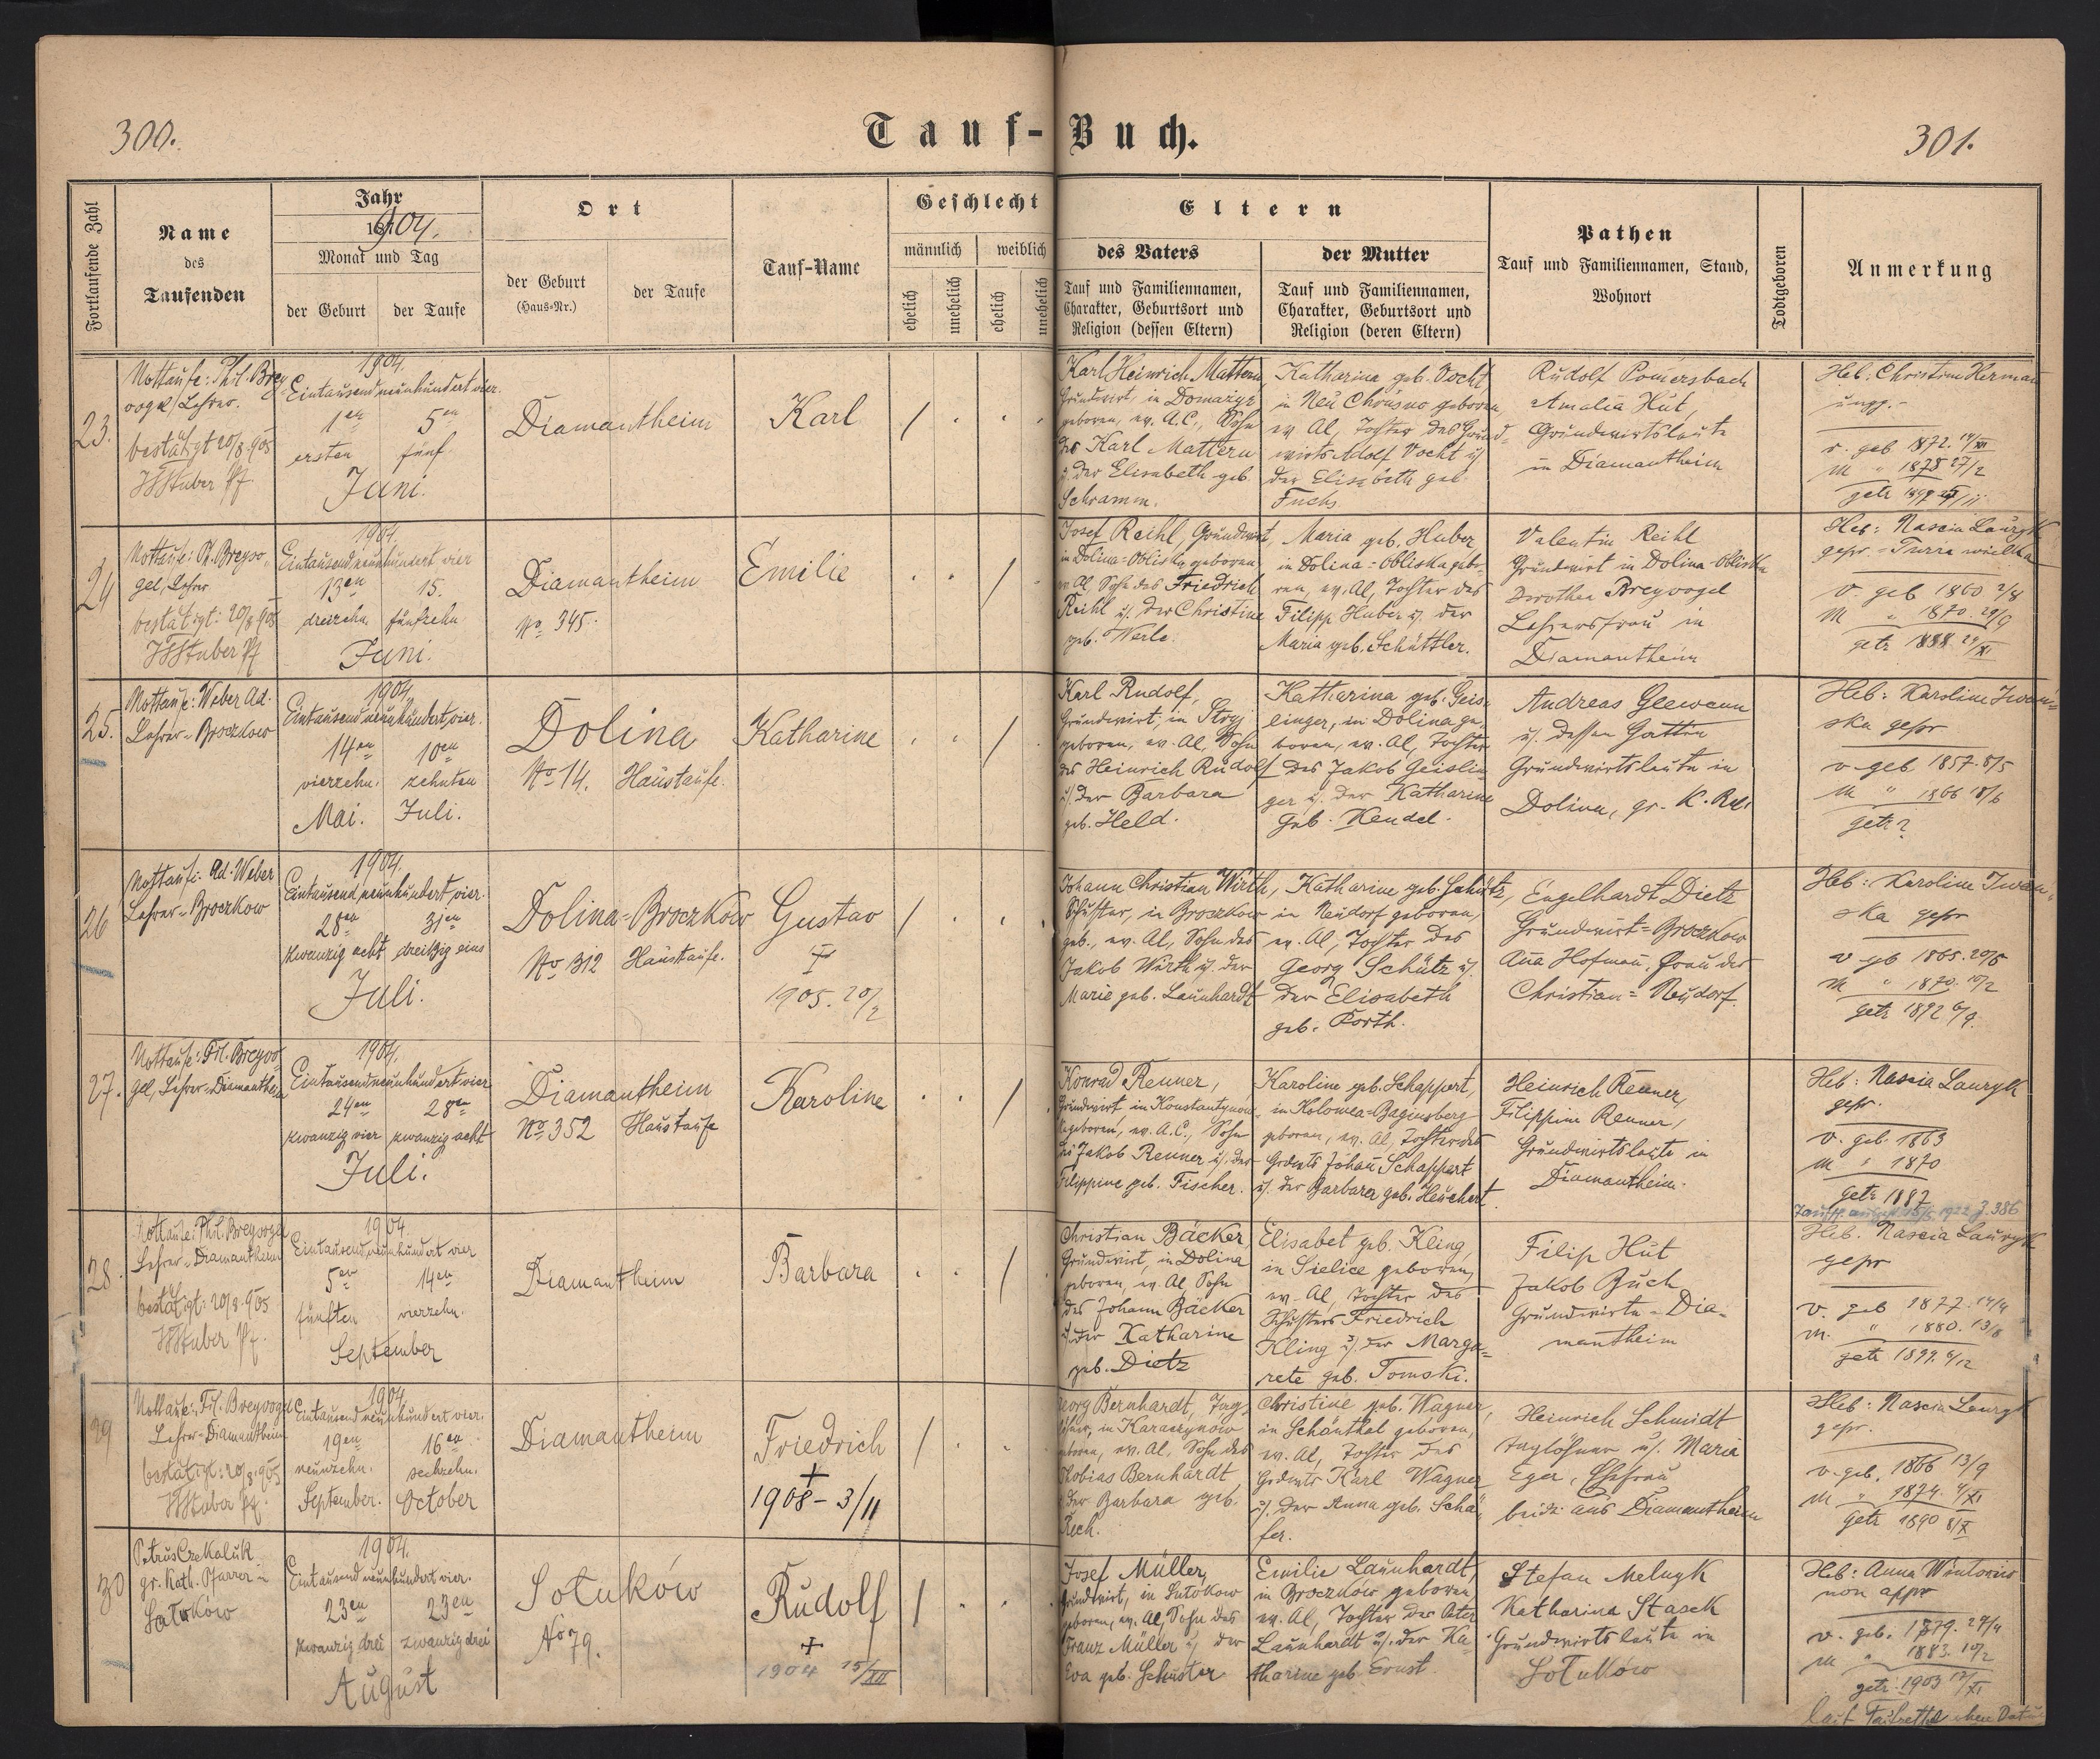 300.
Tauf-Buch.
301.
Fortlaufende Zahl
Name
des
Taufenden
Jahr
1904.
Monat und Tag
der Geburt
der Taufe
Ort
der Geburt
(Haus-Nr.)
der Taufe
Tauf-Name
Geschlecht
männlich
weiblich
ehelich
unehelich
ehelich
unehelich
Eltern
des Vaters
Tauf und Familiennamen,
Charakter, Geburtsort und
Religion (dessen Eltern)
der Mutter
Tauf und Familiennamen,
Charakter, Geburtsort und
Religion (deren Eltern)
Pathen
Tauf und Familiennamen, Stand,
Wohnort
Todtgeboren
Anmerkung
23.
Nottaufe: Phil. Brey
vogel, Lehrer.
bestätigt 20/8.905
Stuber Pf
1904.
Eintausendneunhundertvier.
1en
5en
ersten
fünf
Juni.
Diamantheim
Karl
Karl Heinrich Mattern
Grundwirt, in Domazyr
geboren, ev. A.C., Sohn
des Karl Mattern
u. der Elisabeth geb
Schramm.
Katharina geb. Vocht
in Neu Chrusno geboren,
ev Al, Tochter des Grund-
wirts Adolf Vocht u.
der Elisabeth geb
Fuchs
Rudolf Pomersbach
Amalia Hut,
Grundwirtsleute
in Diamantheim
Heb. Christine Herman
ungp.
v. geb 1872. 14/XI
M " 1878 27/2
24
Nottaufe: Ph. Breyvo
gel, Lehrer
bestätigt: 20/8 905
Stuber Pf
1904.
Eintausendneunhundert vier
13en
15.
dreizehn
fünfzehn
Juni.
Diamantheim
No. 345.
Emilie
Josef Reihl, Grundwirt,
in Dolina=Obliska geboren
ev Al, Sohn des Friedrich
Reihl u. der Christine
geb. Werle.
Maria geb. Huber
in Dolina=Obliska gebo-
ren, ev. Al, Tochter des
Filipp Huber u. der
Maria geb. Schüttler.
Valentin Reihl
Grundwirt in Dolina-Obliska
Dorothea Breyvogel
Lehrersfrau in
Diamantheim
Heb: Nascia Lauryk
gepr. - Turza wielka
v. geb 1860 2/8
M " 1870. 29/9
getr 1888 29/XI
25.
Nottaufe: Weber Ad.
Lehrer - Broczkow
1904
Eintausend neunhundert vier.
14en
10en
vierzehn.
zehnten
Mai.
Juli.
Dolina
No 14.
Haustaufe.
Katharine
Karl Rudolf,
Grundwirt, in Stryj
geboren, ev. Al, Sohn
des Heinrich Rudolf
u. der Barbara
geb. Held.
Katharina geb. Geis-
linger, in Dolina ge-
boren, ev. Al, Tochter
des Jakob Geislin-
ger u. der Katharine
geb. Kendel.
Andreas
u. dessen Gattin
Grundwirtsleute in
Dolina, gr. K. Rel.
Heb: Karoline Iwan=
ska gepr
v geb 1857. 8/5
M " 1866 18/6
getr ?
26
Nottaufe: Ad. Weber
Lehrer - Broczkow
1904.
Eintausend neunhundert vier.
28en
31en
zwanzig acht
dreißig eins
Juli.
Dolina=Broczkow
No 312
Haustaufe.
Gustav
†
1905. 20/2
Johann Christian Wirth,
Schuster, in Broczkow
geb., ev. Al, Sohn des
Jakob Wirth u. der
Marie geb. Launhardt
Katharine geb. Schütz,
in Neudorf geboren,
ev. Al, Tochter des
Georg Schütz u.
der Elisabeth
geb. Porth.
Engelhardt Dietz
Grundwirt=Broczkow
Ana Hofman, Frau des
Christian=Neudorf.
Heb: Karoline Iwan-
ska gepr
v gb 1865. 20/5
M " 1870. 10/2
getr 1892 6/9.
27.
Nottaufe: Fil. Breyvo
gel, Lehrer=Diamantheim
1904.
Eintausendneunhundert vier
24en
28en
zwanzig vier
zwanzig acht
Juli.
Diamantheim
No. 352
Haustaufe
Karoline
Konrad Renner,
Grundwirt in Konstantynow
geboren, ev. A.C., Sohn
des Jakob Renner u. der
Filippine geb. Fischer.
Karoline geb. Schappert,
in Kolomea=Baginsberg
geboren, ev. Al, Tochter des
Grdwts Johan Schappert
u. der Barbara geb. Heuchert.
Heinrich Renner,
Filippine Renner,
Grundwirtsleute in
Diamantheim.
Heb: Nascia Lauryk
gepr.
v. geb. 1863
M " 1870
getr 1887
28.
Nottaufe: Phil. Breyvogel
Lehrer - Diamantheim
bestätigt: 20/8.905
Stuber Pf.
1904.
Eintausend neunhundert vier
5en
14en
fünften
vierzehn.
September
Diamantheim
Barbara
Christian Bäcker,
Grundwirt, in Dolina
geboren, ev. Al, Sohn
des Johann Bäcker
u. der Katharine
geb. Dietz
Elisabet geb. Kling,
in Sielice geboren,
ev. Al, Tochter des
Schusters Friedrich
Kling u. der Marga=
rete geb. Tomski.
Filip Hut
Jakob Buch
Grundwirte - Dia-
mantheim
1922 Z. 386
Heb. Nascia Lauryk
gepr
v. geb 1877. 14/4
m. " 1880. 13/8
getr 1899. 6/12
29
Nottaufe: Fil. Breyvogel
Lehrer=Diamantheim
bestätigt: 20/8.905
Stuber Pf.
1904
Eintausend neunhundert vier.
19en
16en
neunzehn.
sechzehn.
September.
October
Diamantheim
Friedrich
†
1908 - 3/11
Georg Bernhardt, Tag-
löhner, in Karaczynow
geboren, ev. Al, Sohn des
Thobias Bernhardt
u. der Barbara geb.
Rech.
Christine geb. Wagner,
in Schönthal geboren,
ev. Al, Tochter des
Grdwts Karl Wagner
u. der Anna geb. Schä-
fer.
Heinrich Schmidt
Taglöhner u. Maria
Eger, Ehefrau
beide aus Diamantheim
Heb: Nascia Lauryk
gepr.
v. geb. 1866 13/9
M " 1874. 4/XI
getr 1890 8/X
30
Petrus Czekaluk
gr. kath. Pfarrer in
Sołuków
1904.
Eintausend neunhundert vier.
23en
23en
zwanzig drei
zwanzig drei
August
Sołuków
No 79.
Rudolf
†
1904 15/XII
Josef Müller,
Grundwirt, in Solukow
geboren, ev. Al, Sohn des
Franz Müller u. der
Eva geb. Schuster
Emilie Launhardt,
in Broczkow geboren,
ev. Al, Tochter des Peter
Launhardt u. der Ka-
tharine geb. Ernst.
Stefan Melnyk
Katharina Stasek
Grundwirtsleute in
Sołuków
Heb: Anna
non appr
v. geb. 1879. 29/4
M " 1883. 10/2
getr. 1903 17/XI
laut Taufzettel ohne Datum